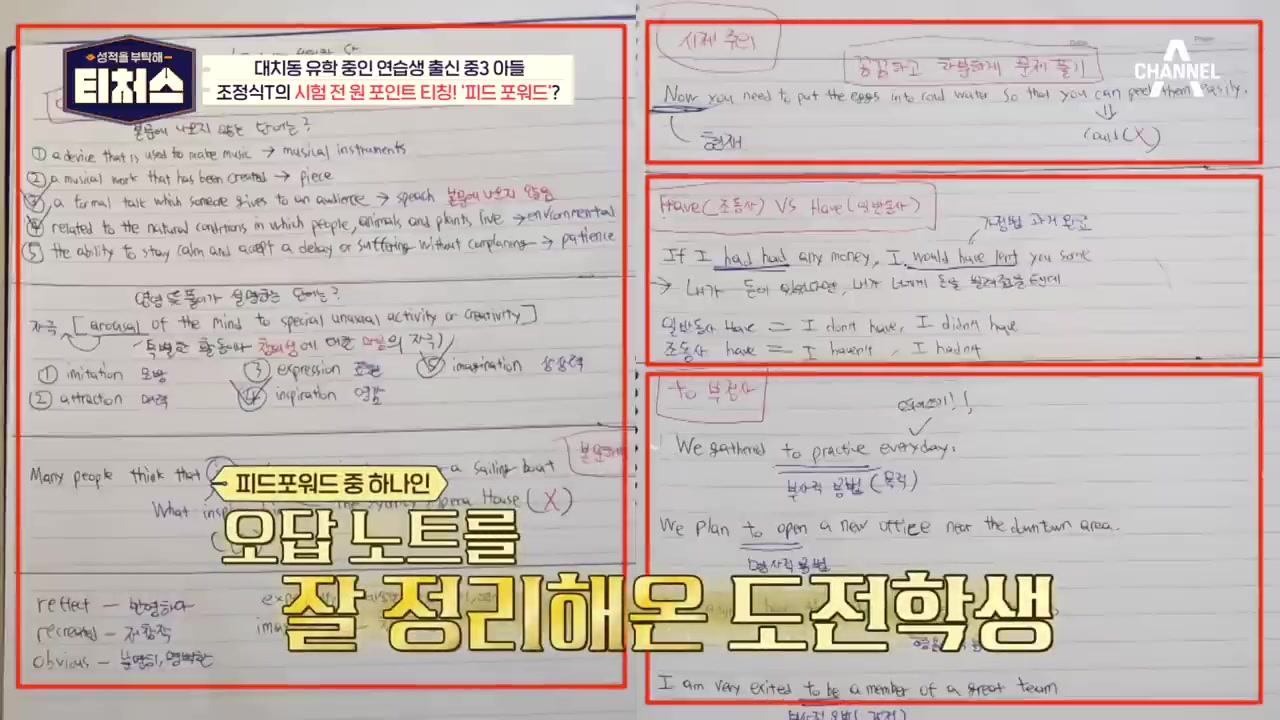 성적을 부탁해
티처스
대치동 유학 중인 연습생 출신 중3 아들
조정식T의 시험 전 원 포인트 티칭! '피드 포워드'?
CHANNEL A
본문에 나오지 않는 단어는?
① a device that is used to make music → musical instruments
② a musical work that has been created → piece
③ a formal talk which someone gives to an audience → speach 본문에 나오지 않음
④ related to the natural conditions in which people, animals and plants live → environmental
⑤ the ability to stay calm and accept a delay or suffering without complaning → patience
영영 뜻풀이가 설명하는 단어는?
자극 [arousal of the mind to special unusual activity or creativity]
특별한 활동이나 창의성에 대한 마음의 자극
① imitation 모방
③ expression 표현
⑤ imagination 상상력
② attraction 매력
④ inspiration 영감
Many people think that a sailing boat
What House (X)
피드포워드 중 하나인
오답 노트를
잘 정리해온 도전학생
reflect - 반영하다
recreated - 재창작
obvious - 분명히, 명백한
시제 주의
꼼꼼하고 차분하게 문제 풀기
Now you need to put the eggs into cold water so that you can peel them easily.
현재
could (X)
Have(조동사) VS Have(일반동사)
가정법 과거 완료
If I had had any money, I would have lent you some
→ 내가 돈이 있었다면, 내가 너에게 돈을 빌려줬을텐데
일반동사 have = I don't have, I didn't have
조동사 have = I haven't, I hadn't
to 부정사
We gathered to practive everyday.
부사적 용법 (목적)
We plan to open a new office near the downtown area.
명사적 용법
I am very exited to be a member of a great team